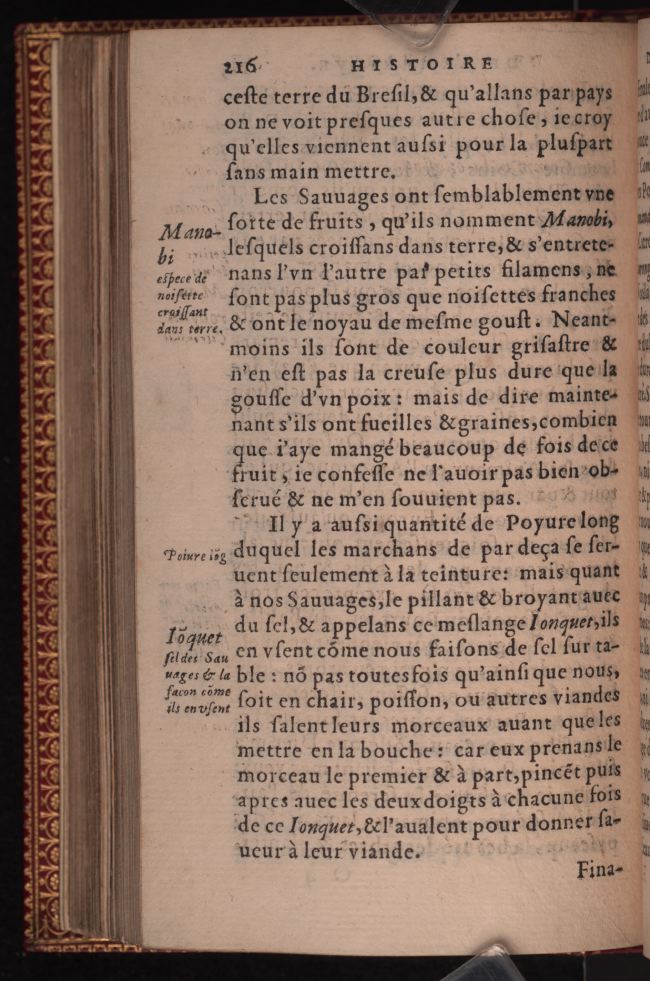 216 HISTOIRE
ceſte terre du Breſil, & qu'allans par pays
on ne voit preſques autre choſe, ie croy
qu'elles viennent auſsi pour la pluſpart
ſans main mettre.
Les Sauuages ont ſemblablement vne
ſorte de fruits, qu'ils nomment Manobi,
leſquels croiſſans dans terre, & s'entrete-
nans l'vn l'autre par petits filamens, ne
ſont pas plus gros que noiſettes franches
& ont le noyau de meſme gouſt. Neant-
moins ils ſont de couleur griſaſtre &
n'en eſt pas la creuſe plus dure que la
gouſſe d'vn poix: mais de dire mainte-
nant s'ils ont fueilles & graines, combien
que i'aye mangé beaucoup de fois de ce
fruit, ie confeſſe ne l'auoir pas bien ob-
ſerué & ne m'en ſouuient pas.
Il y a auſsi quantité de Poyure long
duquel les marchans de par deça ſe ſer-
uent ſeulement à la teinture: mais quant
à nos Sauuages, le pillant & broyant auec
du ſel, & appelans ce meſlange Ionquet, ils
en vſent cõme nous faiſons de ſel ſur ta-
ble: nõ pas toutesfois qu'ainſi que nous,
ſoit en chair, poiſſon, ou autres viandes
ils ſalent leurs morceaux auant que les
mettre en la bouche: car eux prenans le
morceau le premier & à part, pincẽt puis
apres auec les deux doigts à chacune fois
de ce Ionquet, & l'aualent pour donner ſa-
ueur à leur viande.
Fina-
Mano-
bi
eſpece de
noiſette
croiſſant
dans terre.
Poiure lõg
Iõquet
ſel des Sau
uages & la
facon cõme
ils en vſent